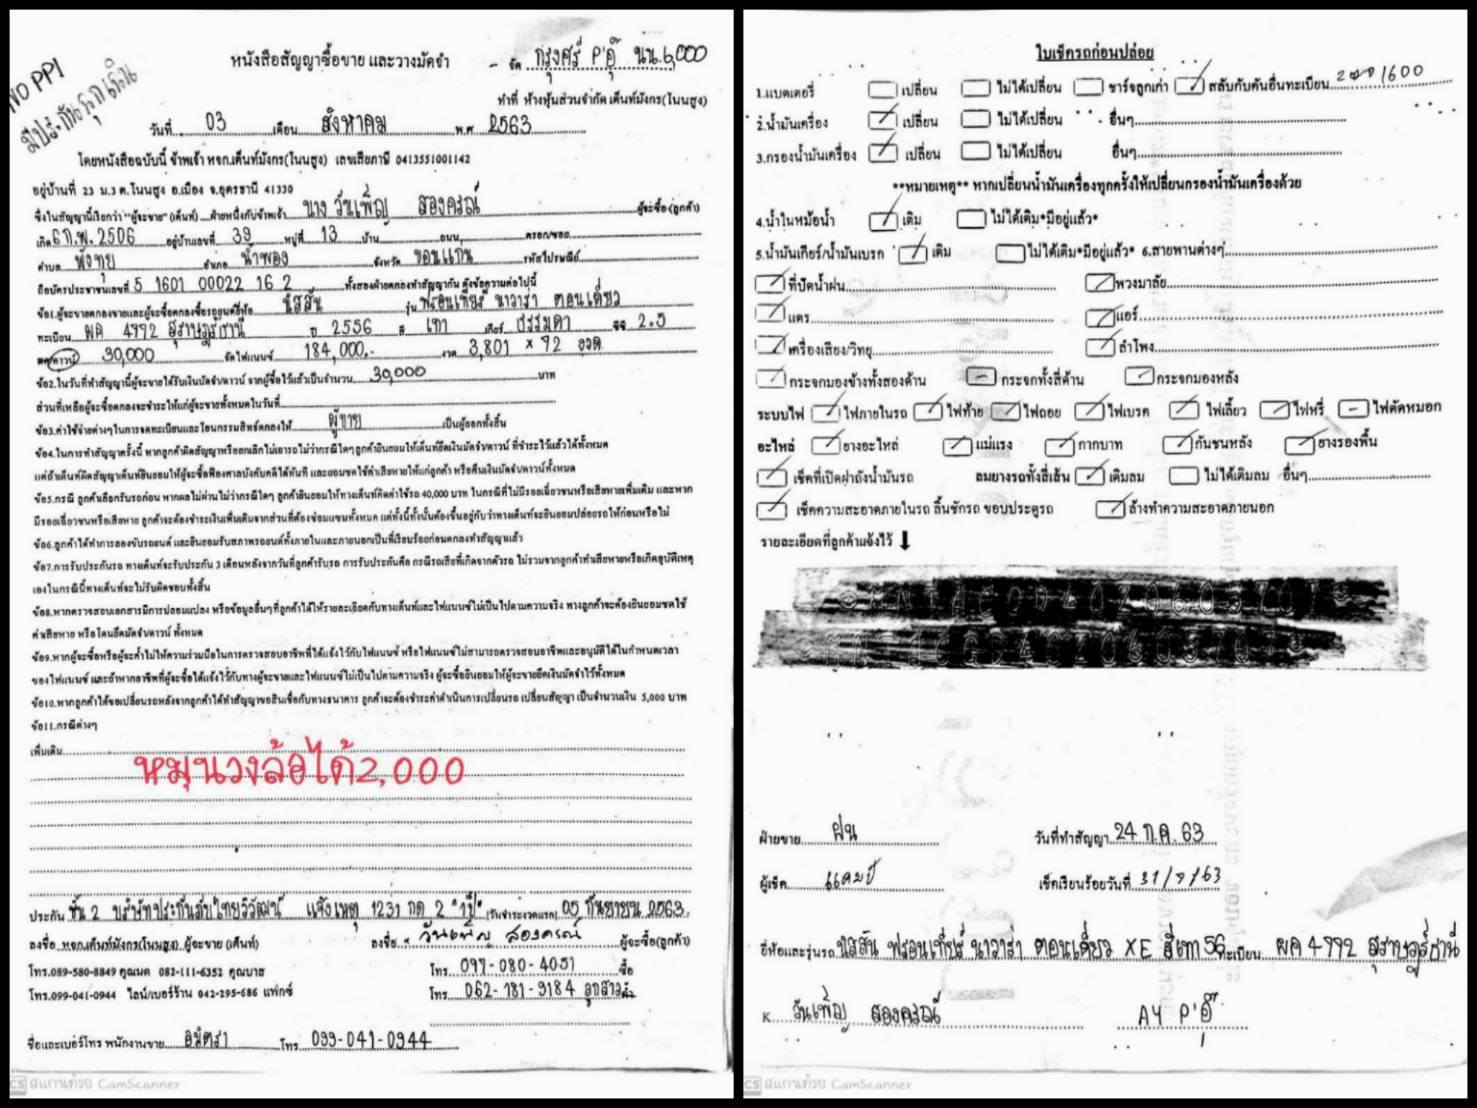 NO PPI
มีประกันรถเดิม
หนังสือสัญญาซื้อขาย และวางมัดจำ
- จัด กรุงศรี P'อุ๊ นน.6,000
ทำที่ ห้างหุ้นส่วนจำกัด เต็นท์มังกร(โนนสูง)
วันที่ 03 เดือน สิงหาคม พ.ศ. 2563
โดยหนังสือฉบับนี้ ข้าพเจ้า หจก.เต็นท์มังกร(โนนสูง) เลขเสียภาษี 0413551001142
อยู่บ้านที่ 23 ม.3 ต.โนนสูง อ.เมือง จ.อุดรธานี 41330
ซึ่งในสัญญานี้เรียกว่า "ผู้จะขาย" (เต็นท์) ฝ่ายหนึ่งกับข้าพเจ้า นาง วันเพ็ญ สองครณ์ ผู้จะซื้อ(ลูกค้า)
เกิด 6 ก.พ. 2506 อยู่บ้านเลขที่ 39 หมู่ที่ 13 บ้าน ถนน ตรอก/ซอย
ตำบล พังทุย อำเภอ น้ำพอง จังหวัด ขอนแก่น รหัสไปรษณีย์
ถือบัตรประชาชนเลขที่ 5 1601 00022 16 2 ทั้งสองฝ่ายตกลงทำสัญญากัน ดังข้อความต่อไปนี้
ข้อ1.ผู้จะขายตกลงขายและผู้จะซื้อตกลงซื้อรถยนต์ยี่ห้อ นิสสัน รุ่น ฟรอนเทียร์ นาวาร่า ตอนเดียว
ทะเบียน ผค 4992 สุราษฎร์ธานี ปี 2556 สี เทา เกียร์ ธรรมดา ซีซี 2.5
ดาวน์ 30,000 จัดไฟแนนซ์ 184,000.- งวด 3,801 x 72 งวด
ข้อ2.ในวันที่ทำสัญญานี้ผู้จะขายได้รับเงินมัดจำ/ดาวน์ จากผู้ซื้อไว้แล้วเป็นจำนวน 30,000 บาท
ส่วนที่เหลือผู้จะซื้อตกลงจะชำระให้แก่ผู้จะขายทั้งหมดในวันที่
ข้อ3.ค่าใช้จ่ายต่างๆในการจดทะเบียนและโอนกรรมสิทธิ์ตกลงให้ ผู้ขาย เป็นผู้ออกทั้งสิ้น
ข้อ4.ในการทำสัญญาครั้งนี้ หากลูกค้าผิดสัญญาหรือยกเลิกไม่เอารถ ไม่ว่ากรณีใดๆลูกค้ายินยอมให้เต็นท์ยึดเงินมัดจำ/ดาวน์ ที่ชำระไว้แล้วได้ทั้งหมด
แต่ถ้าเต็นท์ผิดสัญญาเต็นท์ยินยอมให้ผู้จะซื้อฟ้องศาลบังคับคดีได้ทันที และยอมชดใช้ค่าเสียหายให้แก่ลูกค้า หรือคืนเงินมัดจำ/ดาวน์ทั้งหมด
ข้อ5.กรณี ลูกค้าเลือกรับรถก่อน หากผลไม่ผ่านไม่ว่ากรณีใดๆ ลูกค้ายินยอมให้ทางเต็นท์คิดค่าใช้รถ 40,000 บาท ในกรณีที่ไม่มีรอยเฉี่ยวชนหรือเสียหายเพิ่มเติม และหาก
มีรอยเฉี่ยวชนหรือเสียหาย ลูกค้าจะต้องชำระเงินเพิ่มเติมจากส่วนที่ต้องซ่อมแซมทั้งหมด แต่ทั้งนี้ทั้งนั้นต้องขึ้นอยู่กับว่าทางเต็นท์จะยินยอมปล่อยรถให้ก่อนหรือไม่
ข้อ6.ลูกค้าได้ทำการลองขับรถยนต์ และยินยอมรับสภาพรถยนต์ทั้งภายในและภายนอกเป็นที่เรียบร้อยก่อนตกลงทำสัญญาแล้ว
ข้อ7.การรับประกันรถ ทางเต็นท์จะรับประกัน 3 เดือนหลังจากวันที่ลูกค้ารับรถ การรับประกันคือ กรณีรถเสียที่เกิดจากตัวรถ ไม่รวมจากลูกค้าทำเสียหายหรือเกิดอุบัติเหตุ
เองในกรณีนี้ทางเต็นท์จะไม่รับผิดชอบทั้งสิ้น
ข้อ8.หากตรวจสอบเอกสารมีการปลอมแปลง หรือข้อมูลอื่นๆที่ลูกค้าได้ให้รายละเอียดกับทางเต็นท์และไฟแนนซ์ไม่เป็นไปตามความจริง ทางลูกค้าจะต้องยินยอมชดใช้
ค่าเสียหาย หรือโดนยึดมัดจำ/ดาวน์ ทั้งหมด
ข้อ9.หากผู้จะซื้อหรือผู้จะค้ำไม่ให้ความร่วมมือในการตรวจสอบอาชีพที่ได้แจ้งไว้กับไฟแนนซ์ หรือไฟแนนซ์ไม่สามารถตรวจสอบอาชีพและอนุมัติได้ในกำหนดเวลา
ของไฟแนนซ์ และถ้าหากอาชีพที่ผู้จะซื้อได้แจ้งไว้กับทางผู้จะขายและไฟแนนซ์ไม่เป็นไปตามความจริง ผู้จะซื้อยินยอมให้ผู้จะขายยึดเงินมัดจำไว้ทั้งหมด
ข้อ10.หากลูกค้าได้ขอเปลี่ยนรถหลังจากลูกค้าได้ทำสัญญาขอสินเชื่อกับทางธนาคาร ลูกค้าจะต้องชำระค่าดำเนินการเปลี่ยนรถ เปลี่ยนสัญญา เป็นจำนวนเงิน 5,000 บาท
ข้อ11.กรณีต่างๆ
เพิ่มเติม
หมุนวงล้อได้2,000
ประกัน ชั้น 2 บริษัทประกันภัยไทยวิวัฒน์ แจ้งเหตุ 1231 กด 2 "1ปี" (วันชำระงวดแรก) 05 กันยายน 2563
ลงชื่อ หจก.เต็นท์มังกร(โนนสูง) ผู้จะขาย (เต็นท์) ลงชื่อ วันเพ็ญ สองครณ์ ผู้จะซื้อ(ลูกค้า)
โทร.089-580-8849 คุณมด 082-111-6352 คุณบาส โทร 097-080-4051 ซื้อ
โทร.099-041-0944 ไลน์/เบอร์ร้าน 042-295-686 แฟกซ์ โทร 062-181-9184 ลูกสาว
ชื่อและเบอร์โทร พนักงานขาย อมิตรา โทร 099-041-0944
CS สแกนด้วย CamScanner
ใบเช็ครถก่อนปล่อย
1.แบตเตอรี่ เปลี่ยน ไม่ได้เปลี่ยน ชาร์จลูกเก่า สลับกับคันอื่นทะเบียน 1600
2.น้ำมันเครื่อง เปลี่ยน ไม่ได้เปลี่ยน อื่นๆ
3.กรองน้ำมันเครื่อง เปลี่ยน ไม่ได้เปลี่ยน อื่นๆ
**หมายเหตุ** หากเปลี่ยนน้ำมันเครื่องทุกครั้งให้เปลี่ยนกรองน้ำมันเครื่องด้วย
4.น้ำในหม้อน้ำ เติม ไม่ได้เติม*มีอยู่แล้ว*
5.น้ำมันเกียร์/น้ำมันเบรก เติม ไม่ได้เติม*มีอยู่แล้ว* 6.สายพานต่างๆ
ที่ปัดน้ำฝน พวงมาลัย
แตร แอร์
เครื่องเสียง/วิทยุ ลำโพง
กระจกมองข้างทั้งสองด้าน กระจกทั้งสี่ด้าน กระจกมองหลัง
ระบบไฟ ไฟภายในรถ ไฟท้าย ไฟถอย ไฟเบรค ไฟเลี้ยว ไฟหรี่ ไฟตัดหมอก
อะไหล่ ยางอะไหล่ แม่แรง กากบาท กันชนหลัง ยางรองพื้น
เช็คที่เปิดฝาถังน้ำมันรถ ลมยางรถทั้งสี่เส้น เติมลม ไม่ได้เติมลม อื่นๆ
เช็คความสะอาดภายในรถ ลิ้นชักรถ ขอบประตูรถ ล้างทำความสะอาดภายนอก
รายละเอียดที่ลูกค้าแจ้งไว้ ⬇
ฝ่ายขาย ฝน วันที่ทำสัญญา 24 ก.ค. 63
ผู้เช็ค แคมป์ เช็คเรียบร้อยวันที่ 31/7/63
ยี่ห้อและรุ่นรถ นิสสัน ฟรอนเทียร์ นาวาร่า ตอนเดียว XE สีเทา 56 ทะเบียน ผค 4992 สุราษฎร์ธานี
K. วันเพ็ญ สองครณ์ AY P'อุ๊
CS สแกนด้วย CamScanner